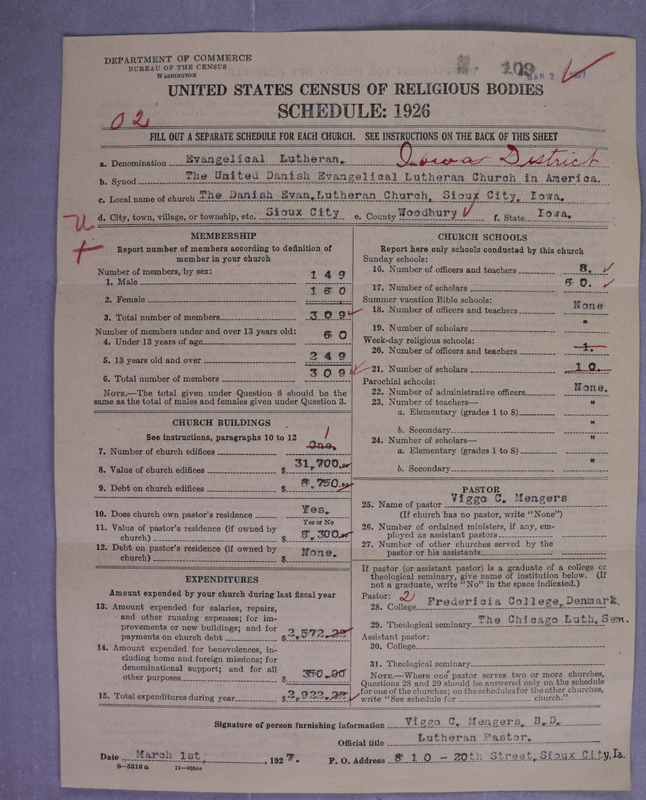 DEPARTMENT OF COMMERCE
BUREAU OF THE CENSUS
WASHINGTON
109
MAR 7 1927
UNITED STATES CENSUS OF RELIGIOUS BODIES
SCHEDULE: 1926
02
FILL OUT A SEPARATE SCHEDULE FOR EACH CHURCH. SEE INSTRUCTIONS ON THE BACK OF THIS SHEET
a. Denomination Evangelical Lutheran. Iowa District
b. Synod The United Danish Evangelical Lutheran Church in America.
c. Local name of church The Danish Evan. Lutheran Church, Sioux City, Iowa.
d. City, town, village, or township, etc. Sioux City e. County Woodbury f. State Iowa.
MEMBERSHIP
Report number of members according to definition of
member in your church
Number of members, by sex:
1. Male 149
2. Female 160
3. Total number of members 309
Number of members under and over 13 years old:
4. Under 13 years of age 60
5. 13 years old and over 249
6. Total number of members 309
NOTE.—The total given under Question 6 should be the
same as the total of males and females given under Question 3.
CHURCH BUILDINGS
See instructions, paragraphs 10 to 12
1
7. Number of church edifices One.
8. Value of church edifices $31,700.00
9. Debt on church edifices $8,750.00
10. Does church own pastor's residence? Yes.
Yes or No
11. Value of pastor's residence (if owned by
church) $8,300.00
12. Debt on pastor's residence (if owned by
church) $None.
EXPENDITURES
Amount expended by your church during last fiscal year
13. Amount expended for salaries, repairs,
and other running expenses; for im-
provements or new buildings; and for
payments on church debt $2,572.22
14. Amount expended for benevolences, in-
cluding home and foreign missions; for
denominational support; and for all
other purposes 350.00
15. Total expenditures during year $2,922.22
CHURCH SCHOOLS
Report here only schools conducted by this church
Sunday schools:
16. Number of officers and teachers 8.
17. Number of scholars 60.
Summer vacation Bible schools:
18. Number of officers and teachers None
19. Number of scholars "
Week-day religious schools:
20. Number of officers and teachers 1.
21. Number of scholars 10.
Parochial schools:
22. Number of administrative officers None.
23. Number of teachers— "
a. Elementary (grades 1 to 8)
b. Secondary "
24. Number of scholars—
a. Elementary (grades 1 to 8) "
b. Secondary "
PASTOR
25. Name of pastor Viggo C. Mengers
(If church has no pastor, write "None")
26. Number of ordained ministers, if any, em-
ployed as assistant pastors
27. Number of other churches served by the
pastor or his assistants
If pastor (or assistant pastor) is a graduate of a college or
theological seminary, give name of institution below. (If
not a graduate, write "No" in the space indicated.)
Pastor: 2
28. College Fredericia College, Denmark.
29. Theological seminary The Chicago Luth. Sem.
Assistant pastor:
30. College
31. Theological seminary
NOTE.—Where one pastor serves two or more churches,
Questions 28 and 29 should be answered only on the schedule
for one of the churches; on the schedules for the other churches,
write "See schedule for church."
Signature of person furnishing information Viggo C. Mengers, B.D.
Official title Lutheran Pastor.
Date March 1st, 1927. P. O. Address 810 - 20th Street, Sioux City, Ia.
8—5518 a